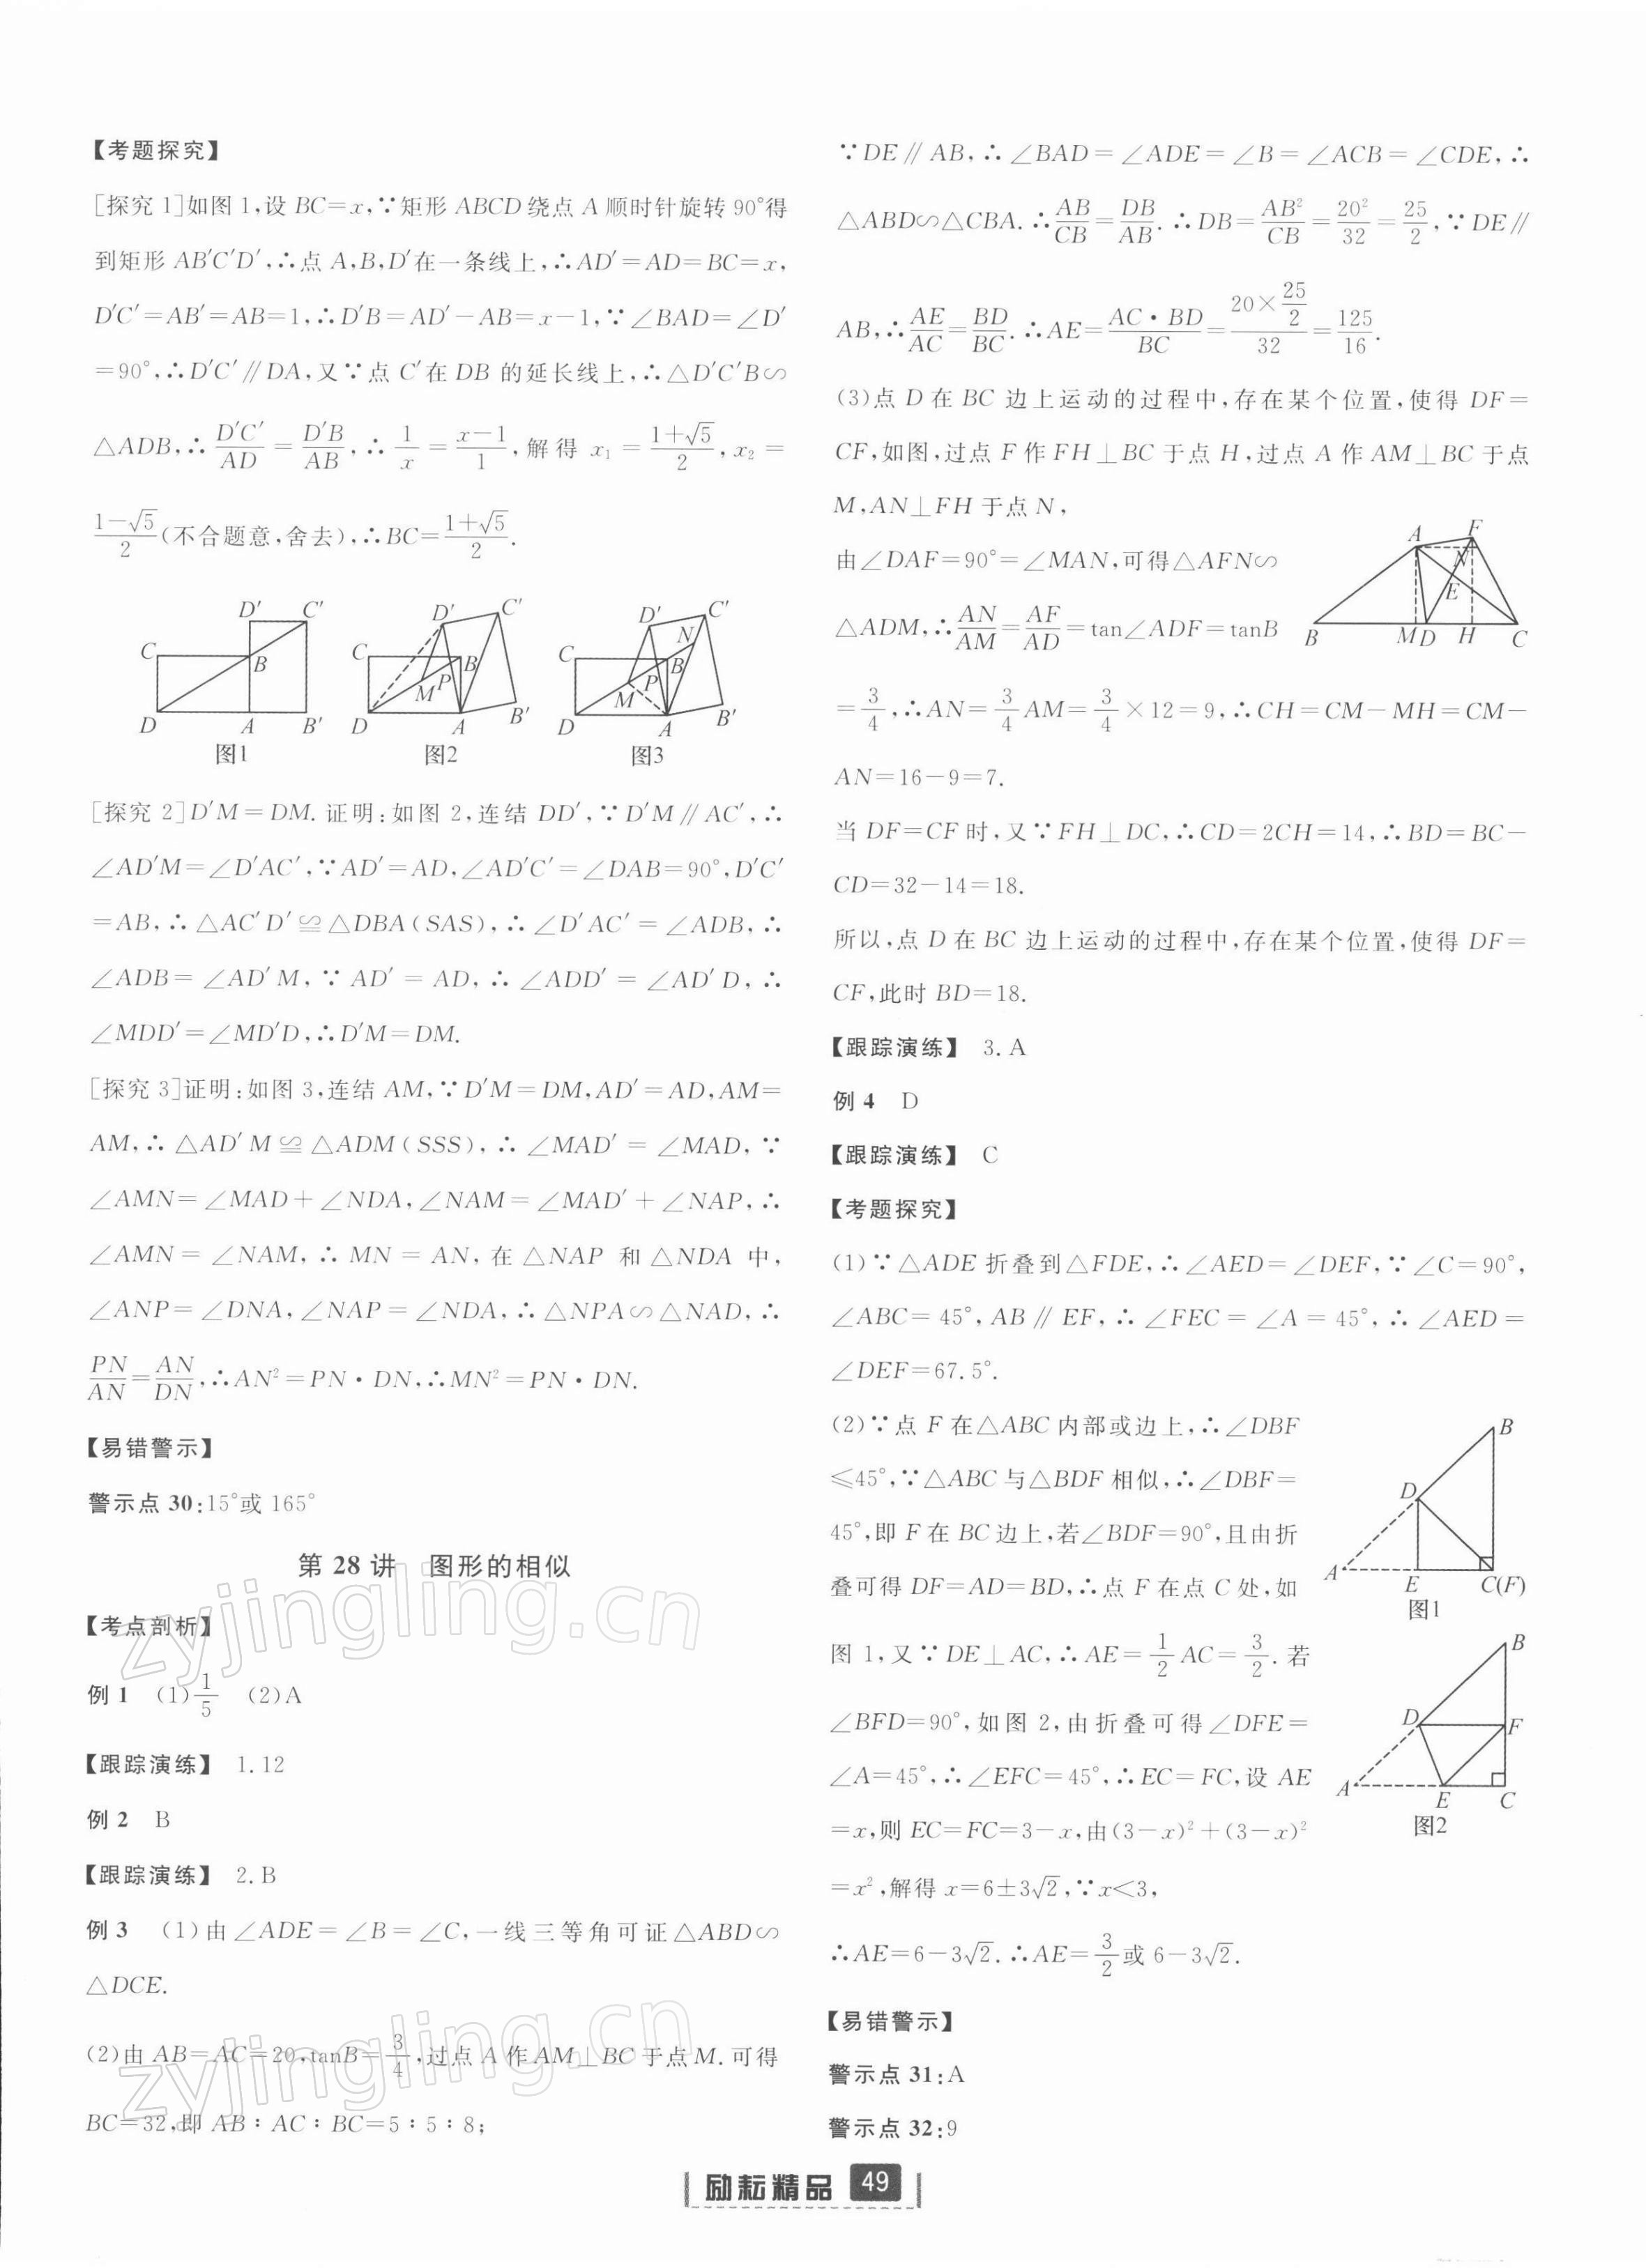 【考题探究】
[探究 1]如图 1,设 BC=x,∵矩形 ABCD 绕点 A 顺时针旋转 90°得
到矩形 AB′C′D′,∴点 A,B,D′在一条线上,∴AD′=AD=BC=x,
D′C′=AB′=AB=1,∴D′B=AD′-AB=x-1,∵∠BAD=∠D′
=90°,∴D′C′∥DA,又∵点 C′在 DB 的延长线上,∴△D′C′B∽
△ADB,∴D′C′/AD=D′B/AB,∴1/x=(x-1)/1,解得 x₁=(1+√5)/2,x₂=
(1-√5)/2(不合题意,舍去),∴BC=(1+√5)/2.
D′ C′ C B D A B′ 图1
D′ C′ C B M P D A B′ 图2
D′ C′ N C B P M D A B′ 图3
[探究 2]D′M=DM.证明:如图 2,连结 DD′,∵D′M∥AC′,∴
∠AD′M=∠D′AC′,∵AD′=AD,∠AD′C′=∠DAB=90°,D′C′
=AB,∴△AC′D′≌△DBA(SAS),∴∠D′AC′=∠ADB,∴
∠ADB=∠AD′M,∵AD′=AD,∴∠ADD′=∠AD′D,∴
∠MDD′=∠MD′D,∴D′M=DM.
[探究 3]证明:如图 3,连结 AM,∵D′M=DM,AD′=AD,AM=
AM,∴△AD′M≌△ADM(SSS),∴∠MAD′=∠MAD,∵
∠AMN=∠MAD+∠NDA,∠NAM=∠MAD′+∠NAP,∴
∠AMN=∠NAM,∴MN=AN,在△NAP 和△NDA 中,
∠ANP=∠DNA,∠NAP=∠NDA,∴△NPA∽△NAD,∴
PN/AN=AN/DN,∴AN²=PN·DN,∴MN²=PN·DN.
【易错警示】
警示点 30:15°或 165°
第 28 讲 图形的相似
【考点剖析】
例 1 (1)1/5 (2)A
【跟踪演练】 1.12
例 2 B
【跟踪演练】 2.B
例 3 (1)由∠ADE=∠B=∠C,一线三等角可证△ABD∽
△DCE.
(2)由 AB=AC=20,tanB=3/4,过点 A 作 AM⊥BC 于点 M.可得
BC=32,即 AB∶AC∶BC=5∶5∶8;
∵DE∥AB,∴∠BAD=∠ADE=∠B=∠ACB=∠CDE,∴
△ABD∽△CBA.∴AB/CB=DB/AB.∴DB=AB²/CB=20²/32=25/2,∵DE∥
AB,∴AE/AC=BD/BC.∴AE=AC·BD/BC=(20×25/2)/32=125/16.
(3)点 D 在 BC 边上运动的过程中,存在某个位置,使得 DF=
CF,如图,过点 F 作 FH⊥BC 于点 H,过点 A 作 AM⊥BC 于点
M,AN⊥FH 于点 N,
由∠DAF=90°=∠MAN,可得△AFN∽
△ADM,∴AN/AM=AF/AD=tan∠ADF=tanB
A F N E B M D H C
=3/4,∴AN=3/4AM=3/4×12=9,∴CH=CM-MH=CM-
AN=16-9=7.
当 DF=CF 时,又∵FH⊥DC,∴CD=2CH=14,∴BD=BC-
CD=32-14=18.
所以,点 D 在 BC 边上运动的过程中,存在某个位置,使得 DF=
CF,此时 BD=18.
【跟踪演练】 3.A
例 4 D
【跟踪演练】 C
【考题探究】
(1)∵△ADE 折叠到△FDE,∴∠AED=∠DEF,∵∠C=90°,
∠ABC=45°,AB∥EF,∴∠FEC=∠A=45°,∴∠AED=
∠DEF=67.5°.
(2)∵点 F 在△ABC 内部或边上,∴∠DBF
≤45°,∵△ABC 与△BDF 相似,∴∠DBF=
45°,即 F 在 BC 边上,若∠BDF=90°,且由折
叠可得 DF=AD=BD,∴点 F 在点 C 处,如
图 1,又∵DE⊥AC,∴AE=1/2AC=3/2.若
∠BFD=90°,如图 2,由折叠可得∠DFE=
∠A=45°,∴∠EFC=45°,∴EC=FC,设 AE
=x,则 EC=FC=3-x,由(3-x)²+(3-x)²
=x²,解得 x=6±3√2,∵x<3,
∴AE=6-3√2.∴AE=3/2或 6-3√2.
B D A E C(F) 图1
B D F A E C 图2
【易错警示】
警示点 31:A
警示点 32:9
励耘精品 49
zyjingling.cn
zyjingling.cn